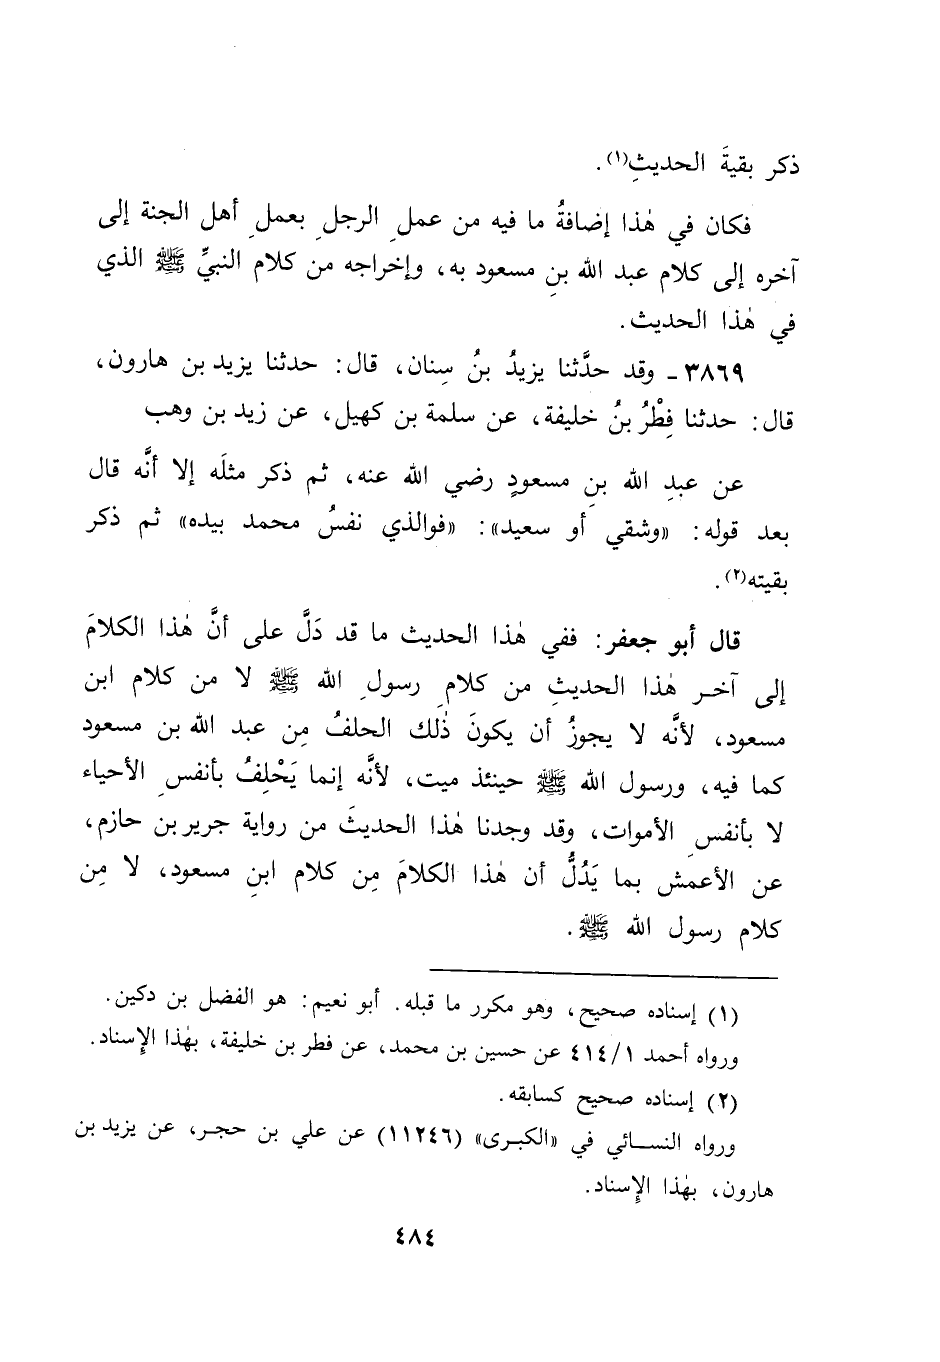 ذكر بقيةَ الحديثِ(١).
فكان في هٰذا إضافةُ ما فيه من عملِ الرجلِ بعملِ أهل الجنة إلى
آخره إلى كلام عبد الله بنِ مسعود به، وإخراجه من كلام النبيِّ ﷺ الذي
في هٰذا الحديث.
٣٨٦٩ ـ وقد حدَّثنا يزيدُ بنُ سِنان، قال: حدثنا يزيد بن هارون،
قال: حدثنا فِطْرُ بنُ خليفة، عن سلمة بن كهيل، عن زيد بن وهب
عن عبدِ الله بنِ مسعودٍ رضي الله عنه، ثم ذكر مثلَه إلا أنَّه قال
بعد قوله: «وشقي أو سعيد»: «فوالذي نفسُ محمد بيده» ثم ذكر
بقيته(٢).
قال أبو جعفر: ففي هٰذا الحديث ما قد دَلَّ على أنَّ هٰذا الكلامَ
إلى آخر هٰذا الحديثِ من كلامِ رسولِ الله ﷺ لا من كلام ابن
مسعود، لأنَّه لا يجوزُ أن يكونَ ذٰلك الحلفُ مِن عبد الله بن مسعود
كما فيه، ورسول الله ﷺ حينئذ ميت، لأنَّه إنما يَحْلِفُ بأنفسِ الأحياء
لا بأنفسِ الأموات، وقد وجدنا هٰذا الحديثَ من رواية جرير بن حازم،
عن الأعمش بما يَدُلُّ أن هٰذا الكلامَ مِن كلام ابنِ مسعود، لا مِن
كلام رسول الله ﷺ.
(١) إسناده صحيح، وهو مكرر ما قبله. أبو نعيم: هو الفضل بن دكين.
ورواه أحمد ٤١٤/١ عن حسين بن محمد، عن فطر بن خليفة، بهٰذا الإِسناد.
(٢) إسناده صحيح كسابقه.
ورواه النسائي في «الكبرى» (١١٢٤٦) عن علي بن حجر، عن يزيد بن
هارون، بهٰذا الإِسناد.
٤٨٤